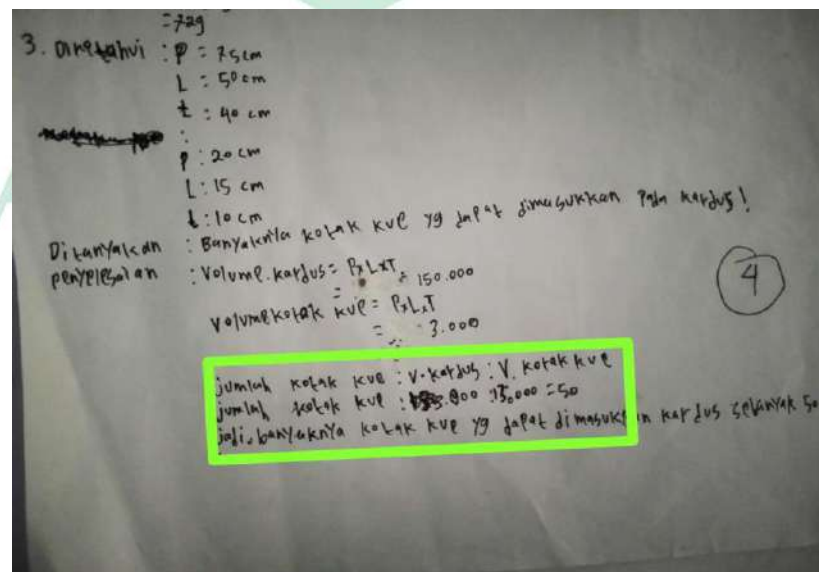 =72g
3. Diketahui : P = 75 cm
L : 50 cm
t : 40 cm
:
P : 20 cm
L : 15 cm
t : 10 cm
Ditanyakan : Banyaknya kotak kue yg dapat dimasukkan pada kardus!
penyelesaian : Volume kardus = PxLxT
= 150.000
4
Volume kotak kue = PxLxT
= 3.000
jumlah kotak kue : V. kardus : V. kotak kue
jumlah kotak kue : .000 : .000 = 50
jadi, banyaknya kotak kue yg dapat dimasukkan kardus sebanyak 50